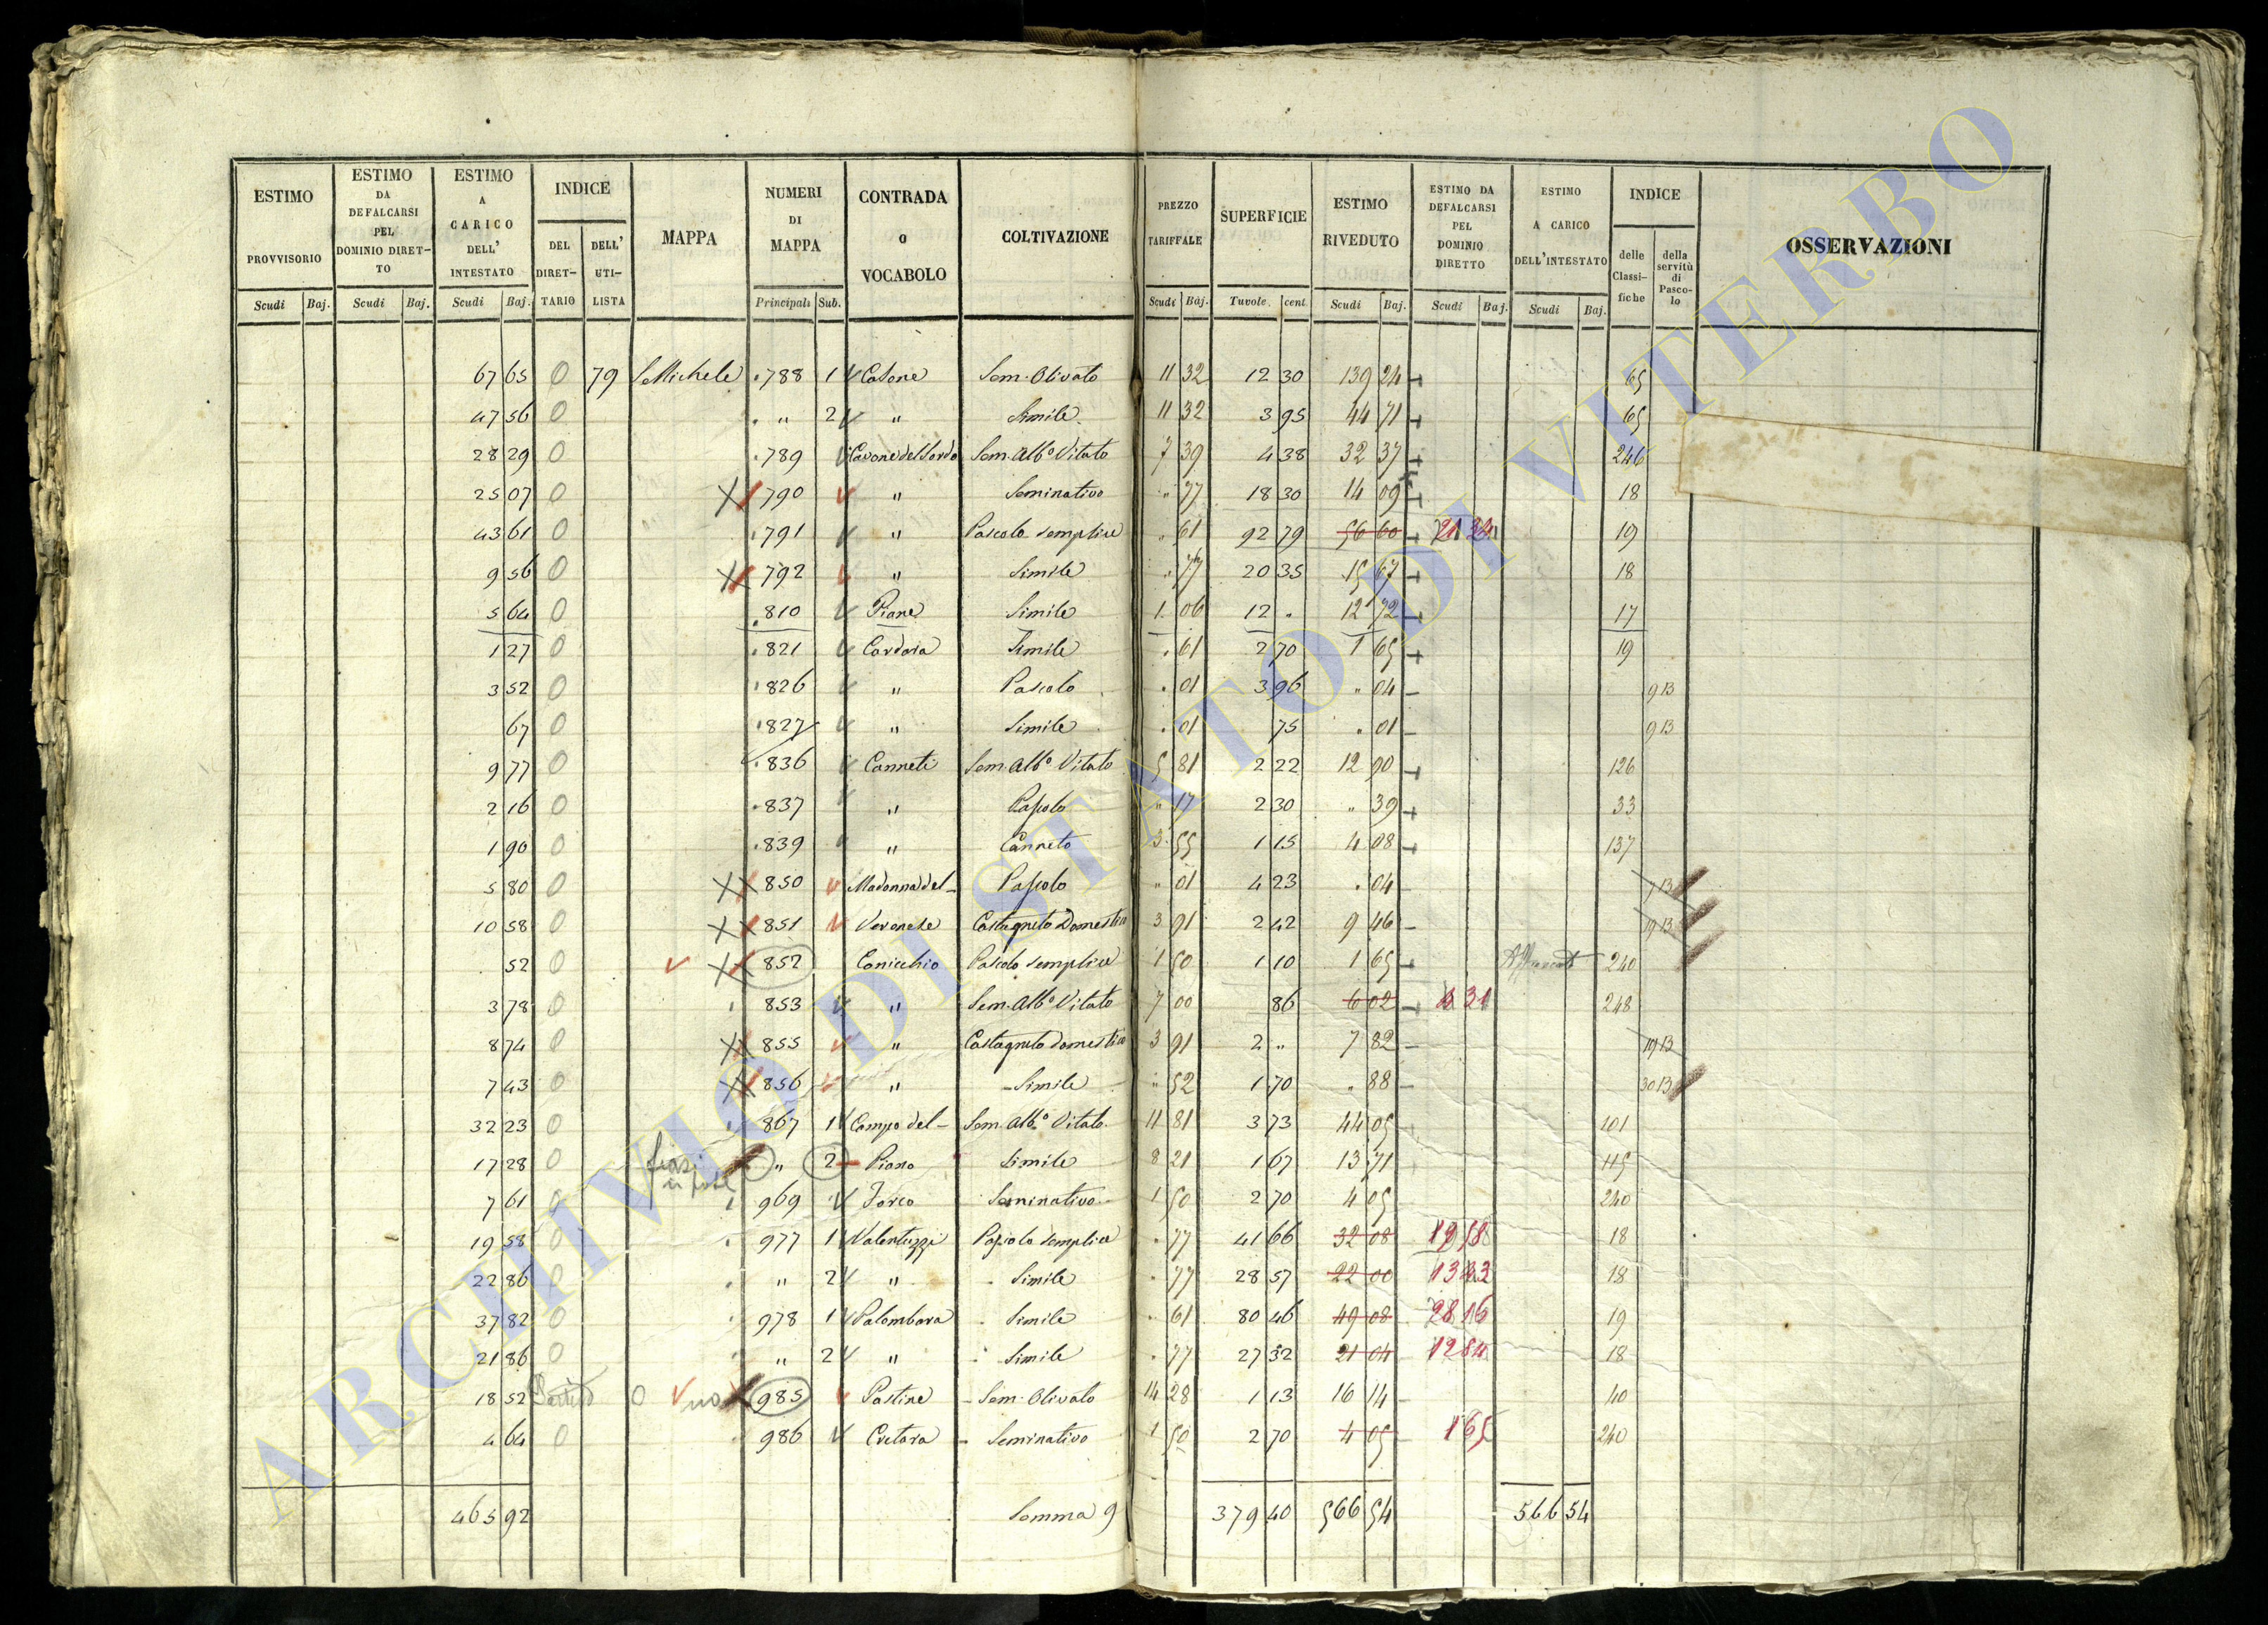 ESTIMO PROVVISORIO Scudi Baj.
ESTIMO DA DEFALCARSI PEL DOMINIO DIRETTO Scudi Baj.
ESTIMO A CARICO DELL' INTESTATO Scudi Baj.
INDICE DEL DIRETTARIO DELL' UTILISTA
MAPPA
NUMERI DI MAPPA Principali Sub.
CONTRADA o VOCABOLO
COLTIVAZIONE
PREZZO TARIFFALE Scudi Baj.
SUPERFICIE Tavole cent
ESTIMO RIVEDUTO Scudi Baj.
ESTIMO DA DEFALCARSI PEL DOMINIO DIRETTO Scudi Baj.
ESTIMO A CARICO DELL'INTESTATO Scudi Baj.
INDICE delle Classifiche della servitù di Pascolo
OSSERVAZIONI
67 65 0 79 S. Michele 788 1 Casone Sem. Olivato 11 32 12 30 139 24 65
47 56 0 " 2 " Simile 11 32 3 95 44 71 65
28 29 0 789 Sem. Albo Vitato 7 39 4 38 32 37 246
25 07 0 790 " Seminativo " 77 18 30 14 09 18
43 61 0 791 " Pascolo semplice . 61 92 79 56 60 19
9 56 0 792 " Simile " 77 20 35 15 67 18
5 64 0 810 Piane Simile 1 06 12 " 12 72 17
1 27 0 821 Cardara Simile . 61 2 70 1 65 19
3 52 0 826 " Pascolo . 01 3 96 " 04 9 13
67 0 827 " Simile . 01 75 " 01 9 13
9 77 0 836 Canneti Sem. Albo Vitato 5 81 2 22 12 90 126
2 16 0 837 " Pascolo " 17 2 30 " 39 33
1 90 0 839 " Canneto 3 55 1 15 4 08 137
5 80 0 850 Madonna del- Pascolo " 01 4 23 . 04 13
10 58 0 851 Veronese Castagneto Domestico 3 91 2 42 9 46 19 13
52 0 852 Conicchio Pascolo semplice 1 50 1 10 1 65 240
3 78 0 853 " Sem. Albo Vitato 7 00 86 6 02 31 248
8 74 0 855 " Castagneto domestico 3 91 2 " 7 82 19 13
7 43 0 856 " Simile " 52 1 70 " 88 30 13
32 23 0 867 1 Campo del- Sem. Albo Vitato 11 81 3 73 44 05 101
17 28 0 " 2 Piano Simile 8 21 1 67 13 71 115
7 61 0 969 Forco Seminativo 1 50 2 70 4 05 240
19 58 0 977 1 Valentuzzi Pascolo semplice . 77 41 66 32 08 19 58 18
22 86 0 " 2 " Simile . 77 28 57 22 00 13 43 18
37 82 0 978 1 Palombara Simile . 61 80 46 49 08 28 16 19
21 86 0 " 2 " Simile . 77 27 32 21 04 12 84 18
18 52 0 no 985 Pastine Sem. Olivato 14 28 1 13 16 14 40
4 64 0 986 Cretara Seminativo 1 50 2 70 4 05 1 65 240
465 92 Somma 9 379 40 566 54 566 54
ARCHIVIO DI STATO DI VITERBO